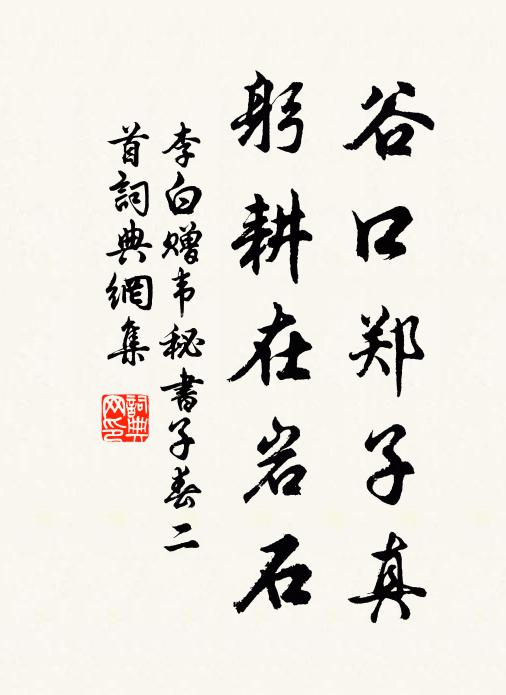 谷口郑子真
躬耕在岩石
李白赠韦秘书子春二
首詞典網集
詞典
网印